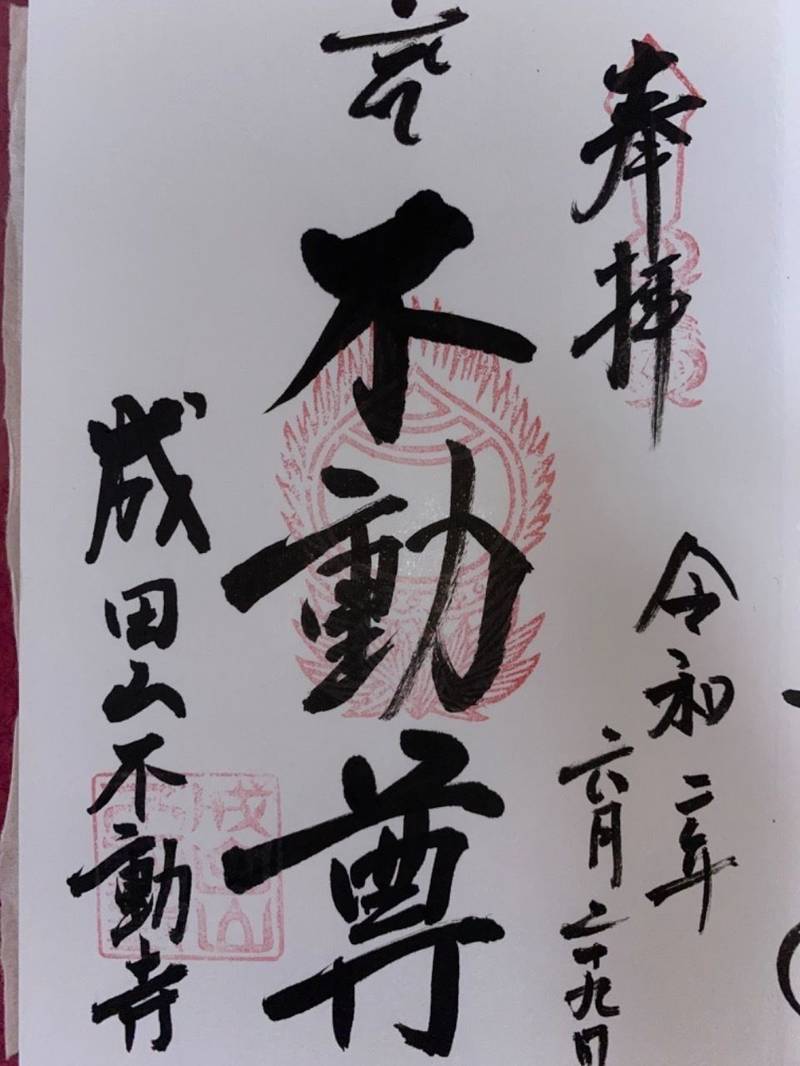 奉拝
令和二年
六月二十九日
不動尊
成田山不動寺